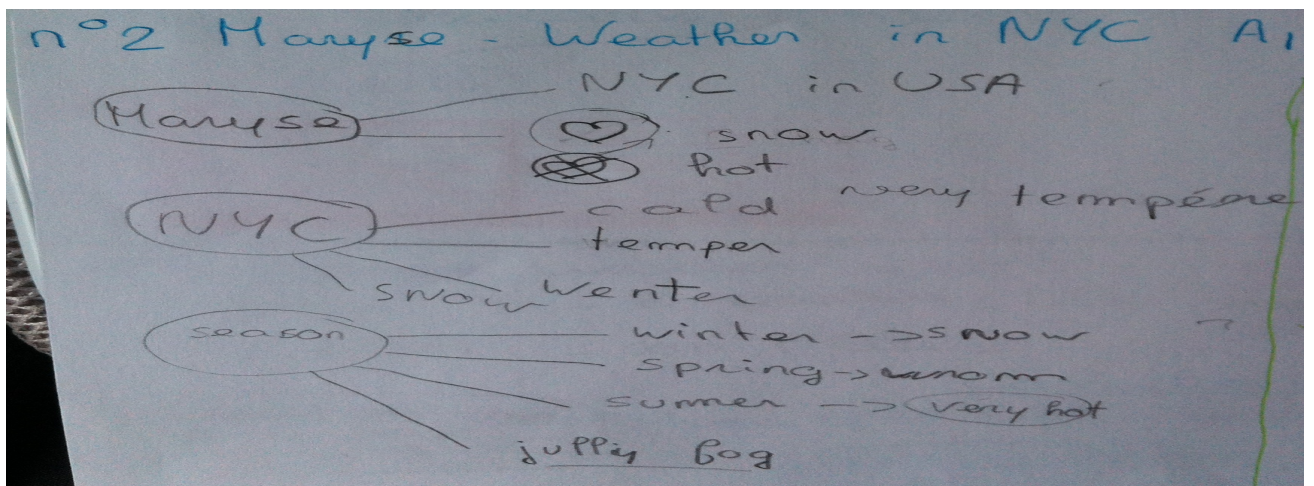 n°2 Maryse - Weather in NYC A1
NYC in USA
Maryse
snow
hot
NYC
cald very tempére
temper
snow wenter
season
winter -> snow
spring ->
sumer -> very hot
fog